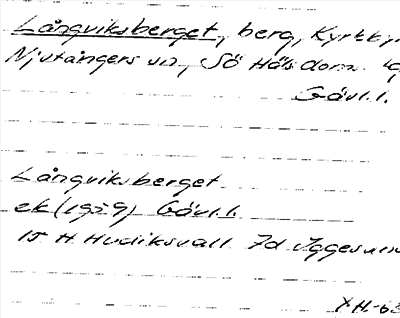 Långviksberget, berg, Kyrkby
Njutångers sn, Sö Häls dom.
Gävl.l.
Långviksberget
ek (1959) Gävl.l.
15 H Hudiksvall 7d Iggesund